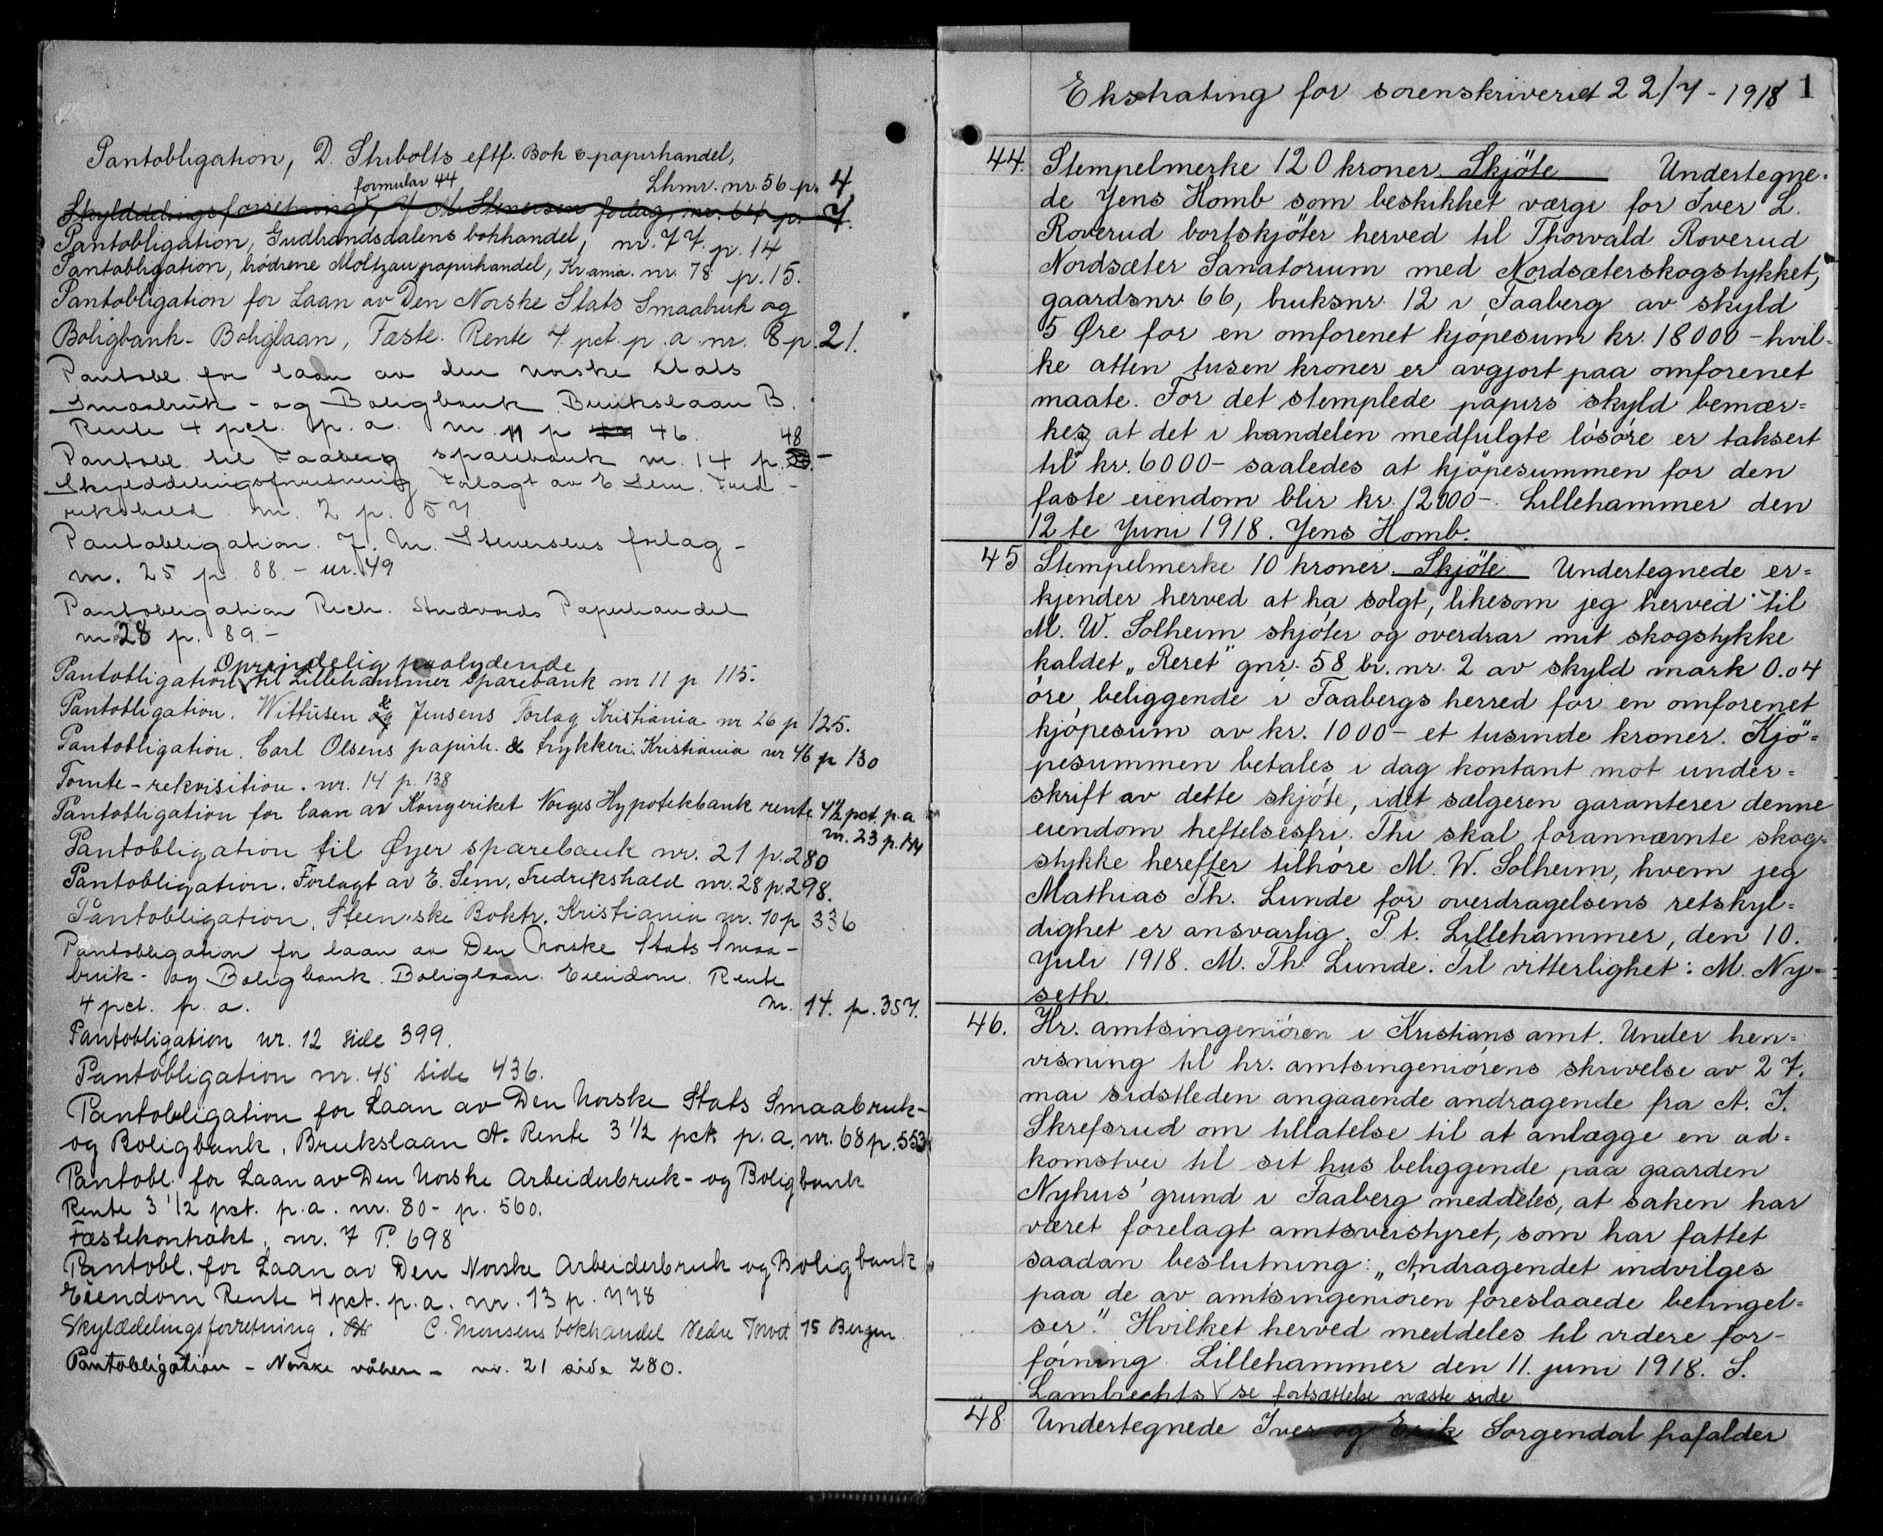 Pantobligation, D. Stribolts eftf. Bok & papirhandel,
formular 44
Lhmr. nr. 56 p. 4
Skylddelingsforretning, J. M. Stenersen forlag, nr. 64 p. 7.
Pantobligation, Gudbrandsdalens bokhandel, nr. 77. p. 14
Pantobligation, brødrene Moltzau papirhandel, Kr.ania. nr. 78 p. 15.
Pantobligation for Laan av Den Norske Stats Smaabruk og
Boligbank - Boliglaan, Fæste. Rente 4 pct. p. a. nr. 8 p. 21.
Pantobl. for laan av den norske stats
Smaabruk - og Boligbank Brukslaan B.
Rente 4 pct. p. a. nr. 11 p 46.
48
Pantobl. til Faaberg sparebank nr. 14 p.
Skylddelingsforretning Forlagt av E Sem. Fred-
rikshald nr. 2 p. 57
Pantobligation. J. M. Stenersens forlag -
nr. 25 p. 88. - nr. 49
Pantobligation Rich. Andvords Papirhandel
nr 28 p. 89. -
Oprindelig paalydende
Pantobligation til Lillehammer sparebank nr 11 p 115.
Pantobligation. Wittusen & Jensens Forlag Kristiania nr 26 p 125.
Pantobligation. Carl Olsens papirh. & trykkeri. Kristiania nr 46 p 130
Tomte - rekvisition. nr. 14 p. 138
Pantobligation for laan av Kongeriket Norges Hypotekbank rente 4½ pct. p. a
nr. 23 p. 144
Pantobligation til Øyer sparebank nr. 21 p. 280
Pantobligation. Forlagt av E. Sem, Fredrikshald nr. 28 p. 298.
Pantobligation. Steen'ske Boktr. Kristiania nr. 10 p 336
Pantobligation for laan av Den Norske Stats Smaa-
bruk - og Boligbank. Boliglaan. Eiendom. Rente
4 pct. p. a. nr. 14. p. 357.
Pantobligation nr. 12 side 399.
Pantobligation nr. 45 side 436.
Pantobligation for Laan av Den Norske Stats Smaabruk-
og Boligbank. Brukslaan A. Rente 3 1/2 pct. p. a. nr. 68 p. 553
Pantobl. for Laan av Den Norske Arbeiderbruk - og Boligbank
Rente 3 1/2 pct. p. a. nr. 80 - p. 560.
Fæstekontrakt, nr. 7 P. 698
Pantobl. for Laan av Den Norske Arbeiderbruk og Boligbank
Eiendom Rente 4 pct. p. a. nr. 13 p. 778
Skylddelingsforretning. C. Monsens bokhandel Nedre Torvet 15 Bergen
Pantobligation - Norske våben - nr. 21 side 280.
Ekstrating for sorenskriveriet 22/7 - 1918 1
44. Stempelmerke 120 kroner Skjöte Undertegne-
de Jens Homb som beskikket værge for Iver L.
Roverud bortskjöter herved til Thorvald Roverud
Nordsæter Sanatorium med Nordsæterskogstykket,
gaardsnr 66, bruksnr. 12 i Faaberg av skyld
5 Øre for en omforenet kjøpesum kr. 18000 - hvil-
ke atten tusen kroner er avgjort paa omforenet
maate. For det stemplede papirs skyld bemær=
kes at det i handelen medfulgte lösöre er taksert
til kr. 6000 - saaledes at kjöpesummen for den
faste eiendom blir kr. 12000 -. Lillehammer den
12te Juni 1918. Jens Homb.
45 Stempelmerke 10 kroner. Skjöte Undertegnede er=
kjender herved at ha solgt, likesom jeg herved til
M. W. Solheim skjöter og overdrar mit skogstykke
kaldet „Reret" gnr. 58 br. nr. 2 av skyld mark 0.04
öre, beliggende i Faabergs herred for en omforenet
kjöpesum av kr. 1000 - et tusinde kroner. Kjö=
pesummen betales i dag kontant mot under=
skrift av dette skjöte, idet sælgeren garanterer denne
eiendom heftelsesfri. Thi skal forannævnte skog=
stykke herefter tilhöre M. W. Solheim, hvem jeg
Mathias Th. Lunde for overdragelsens retskyl=
dighet er ansvarlig. P. t. Lillehammer, den 10.
Juli 1918. M. Th. Lunde. Til vitterlighet: M. Ny=
seth.
46. Hr. amtsingeniören i Kristians amt. Under hen=
visning til hr. amtsingeniörens skrivelse av 27.
mai sidstleden angaaende andragende fra A. J.
Skrefsrud om tillatelse til at anlægge en ad=
komstvei til sit hus beliggende paa gaarden
Nyhus' grund i Faaberg meddeles, at saken har
været forelagt amtsveistyret, som har fattet
saadan beslutning: „Andragendet indvilges
paa de av amtsingeniören foreslaaede betingel=
ser." Hvilket herved meddeles til videre for-
föining. Lillehammer den 11. juni 1918. S.
Lambrechts √ se fortsættelse næste side
48 Undertegnede Iver og Erik Sorgendal frafalder